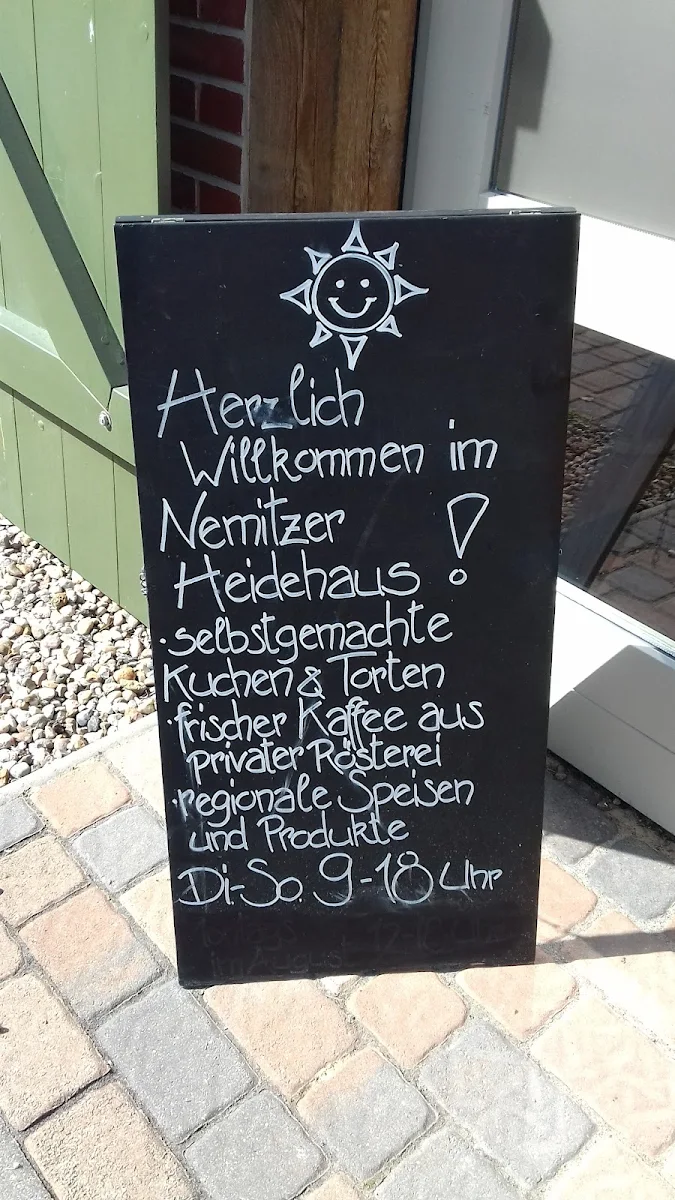 Herzlich
Willkommen im
Nemitzer
Heidehaus !
·selbstgemachte
Kuchen & Torten
·frischer Kaffee aus
privater Rösterei
·regionale Speisen
und Produkte
Di.-So. 9-18 Uhr
im August